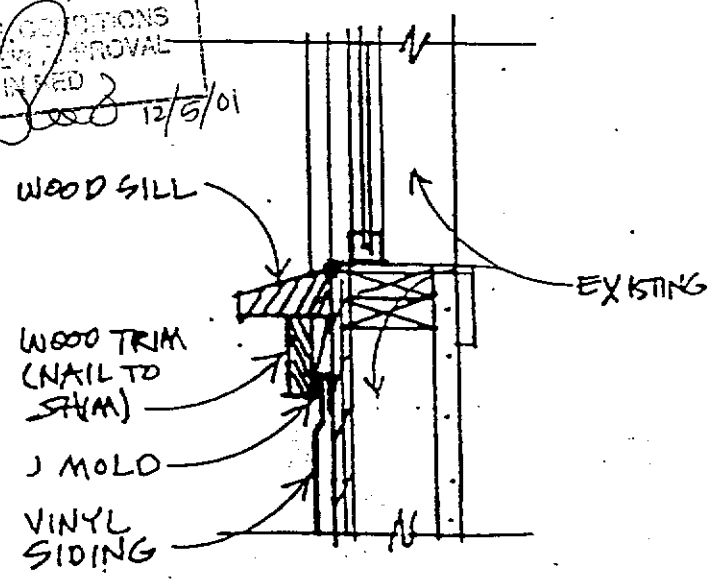 CONDITIONS
APPROVAL
IN RED
12/5/01
WOOD SILL
EXISTING
WOOD TRIM
(NAIL TO
SHIM)
J MOLD
VINYL
SIDING